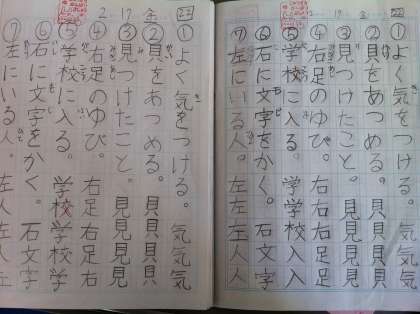 ①よく気をつける。気気気
②貝をあつめる。貝貝貝
③見つけたこと。見見見
④右足のゆび。右右足足
⑤学校に入る。学学校入入
⑥石に文字をかく。石文字
⑦左にいる人。左左左人人
①よく気をつける。気気気
②貝をあつめる。貝貝貝貝
③見つけたこと。見見見見
④右足のゆび。右足右足右
⑤学校に入る。学校学校学
⑥石に文字をかく。石文字
⑦左にいる人。左人左人